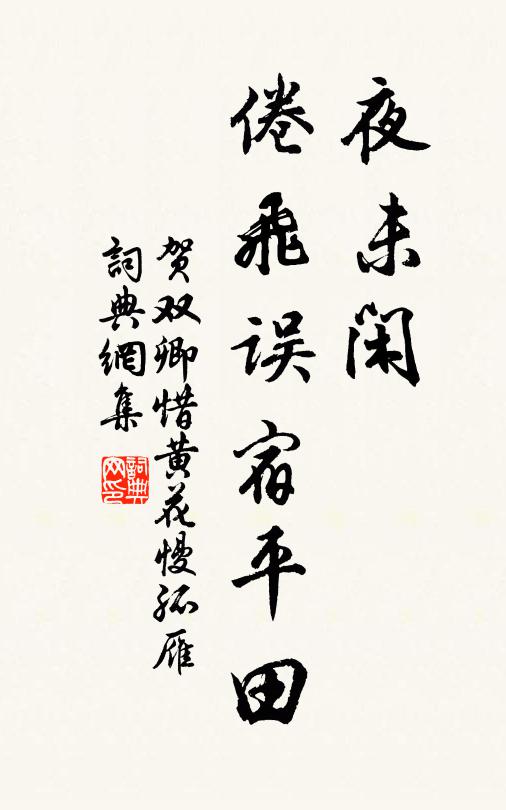 夜未闲
倦飞误宿平田
贺双卿惜黄花慢孤雁
詞典網集
詞典网印